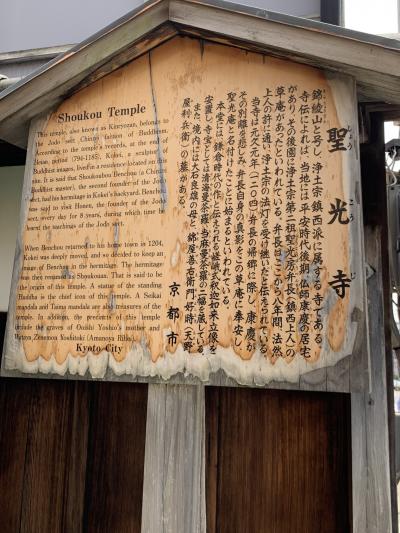 Shoukou Temple
This temple, also known as Kinryozan, belongs to
the Jodo sect Chinzei faction of Buddhism.
According to the temple's records, at the end of
Heian period (794-1185), Kokei, a sculptor of
Buddhist images, lived in a residence located on this
site. It is said that Shoukoubou Benchou (a Chinzei
Buddhist master), the second founder of the Jodo
sect, had his hermitage in Kokei's backyard. Benchou
was said to visit Honen, the founder of the Jodo
sect, every day for 8 years, during which time he
learned the teachings of the Jodo sect.
When Benchou returned to his home town in 1204,
Kokei was deeply moved, and so decided to keep an
image of Benchou in the hermitage. The hermitage
was then renamed as Shokouan. That is said to be
the origin of this temple. A statue of the standing
Buddha is the chief icon of this temple. A Seikai
mandala and Taima mandala are also treasures of this
temple. In addition, the precincts of this temple
include the graves of Ooishi Yoshio's mother and
Wataya Zenemon Yoshitoki (Amanoya Rihei).
Kyoto City
聖光寺
しょうこうじ
錦綾山と号し、浄土宗鎮西派に属する寺である。
寺伝によれば、当地には平安時代後期、仏師康慶の居宅
があり、その後園に浄土宗第二祖聖光房弁長(鎮西上人)の
草庵があったといわれている。弁長はここから八年間、法然
上人の許に通って浄土宗の法灯を受け継いだと伝えられている。
当寺は元久元年(一二〇四)弁長の帰郷に際し、康慶が
その別離を悲しみ、弁長自身の真影をこの草庵に奉安し、
聖光庵と名付けたことに始まるといわれている。
本堂には、鎌倉時代の作と伝えられる嵯峨式釈迦如来立像を
安置し、寺宝としては清海曼荼羅、当麻曼荼羅の二幅を蔵している。
また、境内には大石良雄の母と、綿屋善右衛門好時(天野
屋利兵衛)の墓がある。
京都市